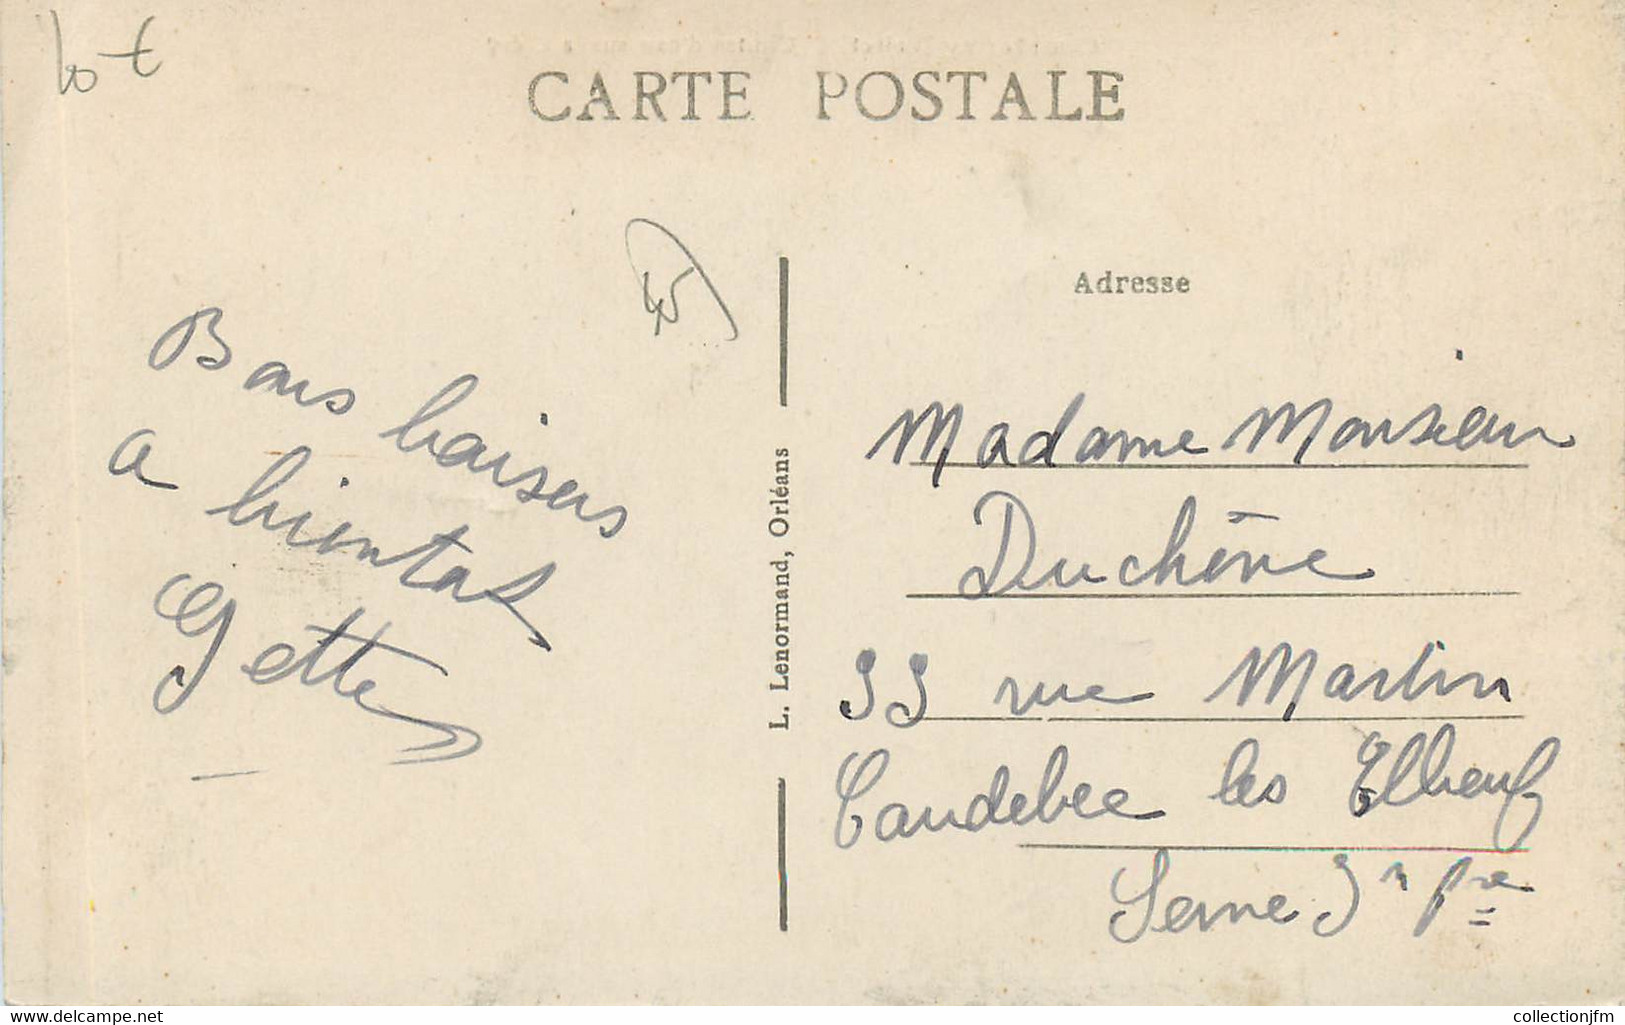 10 €
CARTE POSTALE
45
Adresse
Bons baisers
a bientot
Gette
L. Lenormand, Orléans
Madame Monsieur
Duchêne
33 rue Martin
Caudebec les Elbeuf
Seine Inf re
www.delcampe.net
collectionjfm